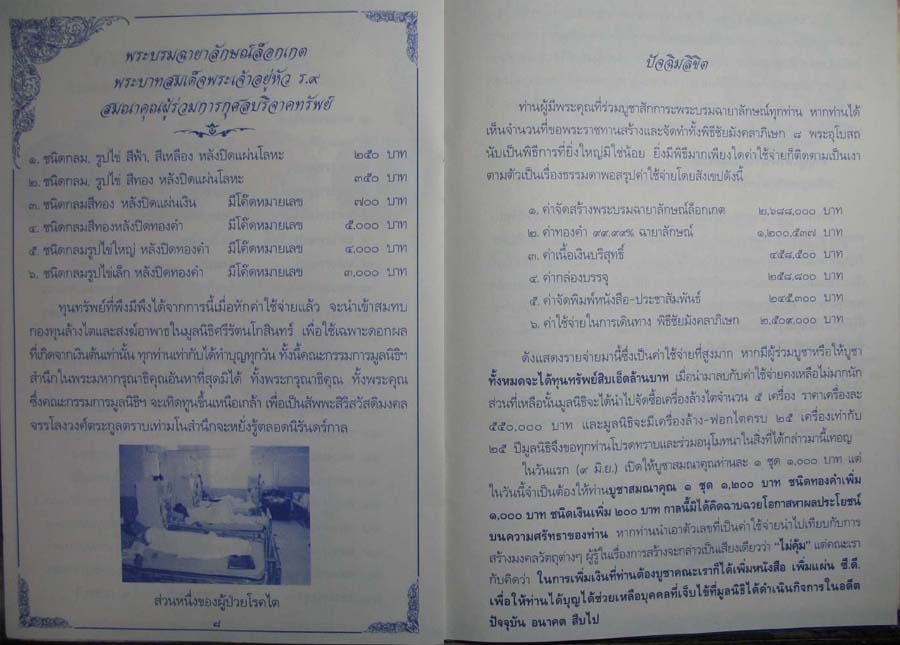 พระบรมฉายาลักษณ์ล็อกเกต
พระบาทสมเด็จพระเจ้าอยู่หัว ร.๙
สมณาคุณผู้ร่วมการกุศลบริจาคทรัพย์
๑. ชนิดกลม, รูปไข่ สีฟ้า, สีเหลือง หลังปิดแผ่นโลหะ ๒๕๐ บาท
๒. ชนิดกลม, รูปไข่ สีทอง หลังปิดแผ่นโลหะ ๓๕๐ บาท
๓. ชนิดกลมสีทอง หลังปิดแผ่นเงิน มีโค๊ตหมายเลข ๗๐๐ บาท
๔. ชนิดกลมสีทองหลังปิดทองคำ มีโค๊ตหมายเลข ๕,๐๐๐ บาท
๕. ชนิดกลมรูปไข่ใหญ่ หลังปิดทองคำ มีโค๊ตหมายเลข ๔,๐๐๐ บาท
๖. ชนิดกลมรูปไข่เล็ก หลังปิดทองคำ มีโค๊ตหมายเลข ๓,๐๐๐ บาท
ทุนทรัพย์ที่พึงมีพึงได้จากการนี้เมื่อหักค่าใช้จ่ายแล้ว จะนำเข้าสมทบ
กองทุนล้างไตและสงฆ์อาพาธในมูลนิธิศรีรัตนโกสินทร์ เพื่อใช้เฉพาะดอกผล
ที่เกิดจากเงินต้นเท่านั้น ทุกท่านเท่ากับได้ทำบุญทุกวัน ทั้งนี้คณะกรรมการมูลนิธิฯ
สำนึกในพระมหากรุณาธิคุณอันหาที่สุดมิได้ ทั้งพระกรุณาธิคุณ ทั้งพระคุณ
ซึ่งคณะกรรมการมูลนิธิฯ จะเทิดทูนขึ้นเหนือเกล้า เพื่อเป็นสัพพะสิริสวัสดิมงคล
จรรโลงวงศ์ตระกูลตราบเท่ามโนสำนึกจะหยั่งรู้ตลอดนิรันดร์กาล
ส่วนหนึ่งของผู้ป่วยโรคไต
๘
ปัจฉิมลิขิต
ท่านผู้มีพระคุณที่ร่วมบูชาสักการะพระบรมฉายาลักษณ์ทุกท่าน หากท่านได้
เห็นจำนวนที่ขอพระราชทานสร้างและจัดทำทั้งพิธีชัยมังคลาภิเษก ๘ พระอุโบสถ
นับเป็นพิธีการที่ยิ่งใหญ่มิใช่น้อย ยิ่งมีพิธีมากเพียงใดค่าใช้จ่ายก็ติดตามเป็นเงา
ตามตัวเป็นเรื่องธรรมดาพอสรุปค่าใช้จ่ายโดยสังเขปดังนี้
๑. ค่าจัดสร้างพระบรมฉายาลักษณ์ล็อกเกต ๒,๖๘๘,๐๐๐ บาท
๒. ค่าทองคำ ๙๙.๙๙% ฉายาลักษณ์ ๑,๒๐๐,๕๓๗ บาท
๓. ค่าเนื้อเงินบริสุทธิ์ ๔๕๘,๕๐๐ บาท
๔. ค่ากล่องบรรจุ ๒๕๘,๘๐๐ บาท
๕. ค่าจัดพิมพ์หนังสือ-ประชาสัมพันธ์ ๒๔๕,๓๐๐ บาท
๖. ค่าใช้จ่ายในการเดินทาง พิธีชัยมังคลาภิเษก ๒,๕๐๙,๐๐๐ บาท
ดังแสดงรายจ่ายมานี้ซึ่งเป็นค่าใช้จ่ายที่สูงมาก หากมีผู้ร่วมบูชาหรือให้บูชา
ทั้งหมดจะได้ทุนทรัพย์สิบเอ็ดล้านบาท เมื่อนำมาลบกับค่าใช้จ่ายคงเหลือไม่มากนัก
ส่วนที่เหลือนั้นมูลนิธิจะได้นำไปจัดซื้อเครื่องล้างไตจำนวน ๕ เครื่อง ราคาเครื่องละ
๕๕๐,๐๐๐ บาท และมูลนิธิจะมีเครื่องล้าง-ฟอกไตครบ ๒๕ เครื่องเท่ากับ
๒๕ ปีมูลนิธิจึงขอทุกท่านโปรดทราบและร่วมอนุโมทนาในสิ่งที่ได้กล่าวมานี้เทอญ
ในวันแรก (๙ มิ.ย.) เปิดให้บูชาสมณาคุณท่านละ ๑ ชุด ๑,๐๐๐ บาท แต่
ในวันนี้จำเป็นต้องให้ท่านบูชาสมณาคุณ ๑ ชุด ๑,๒๐๐ บาท ชนิดทองคำเพิ่ม
๑,๐๐๐ บาท ชนิดเงินเพิ่ม ๒๐๐ บาท กาลนี้มิได้คิดฉาบฉวยโอกาสหาผลประโยชน์
บนความศรัทธาของท่าน หากท่านนำเอาตัวเลขที่เป็นค่าใช้จ่ายนำไปเทียบกับการ
สร้างมงคลวัตถุต่างๆ ผู้รู้ในเรื่องการสร้างจะกล่าวเป็นเสียงเดียวว่า "ไม่คุ้ม" แต่คณะเรา
กับคิดว่า ในการเพิ่มเงินที่ท่านต้องบูชาคณะเราก็ได้เพิ่มหนังสือ เพิ่มแผ่น ซี.ดี.
เพื่อให้ท่านได้บุญได้ช่วยเหลือบุคคลที่เจ็บไข้ที่มูลนิธิได้ดำเนินกิจการในอดีต
ปัจจุบัน อนาคต สืบไป